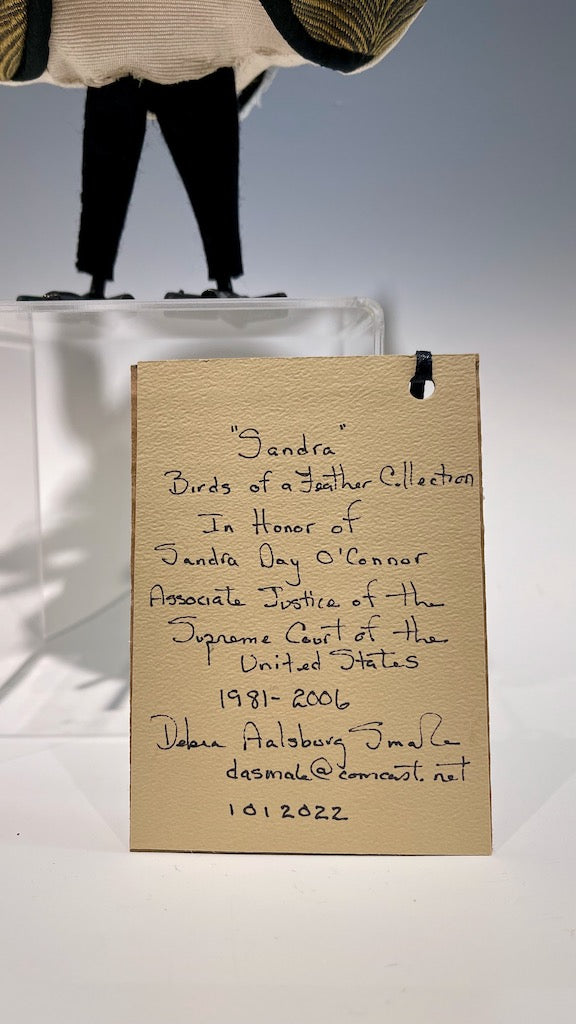 "Sandra"
Birds of a Feather Collection
In Honor of
Sandra Day O'Connor
Associate Justice of the
Supreme Court of the
United States
1981-2006
Debra Aalsburg Smale
dasmale@comcast.net
1012022